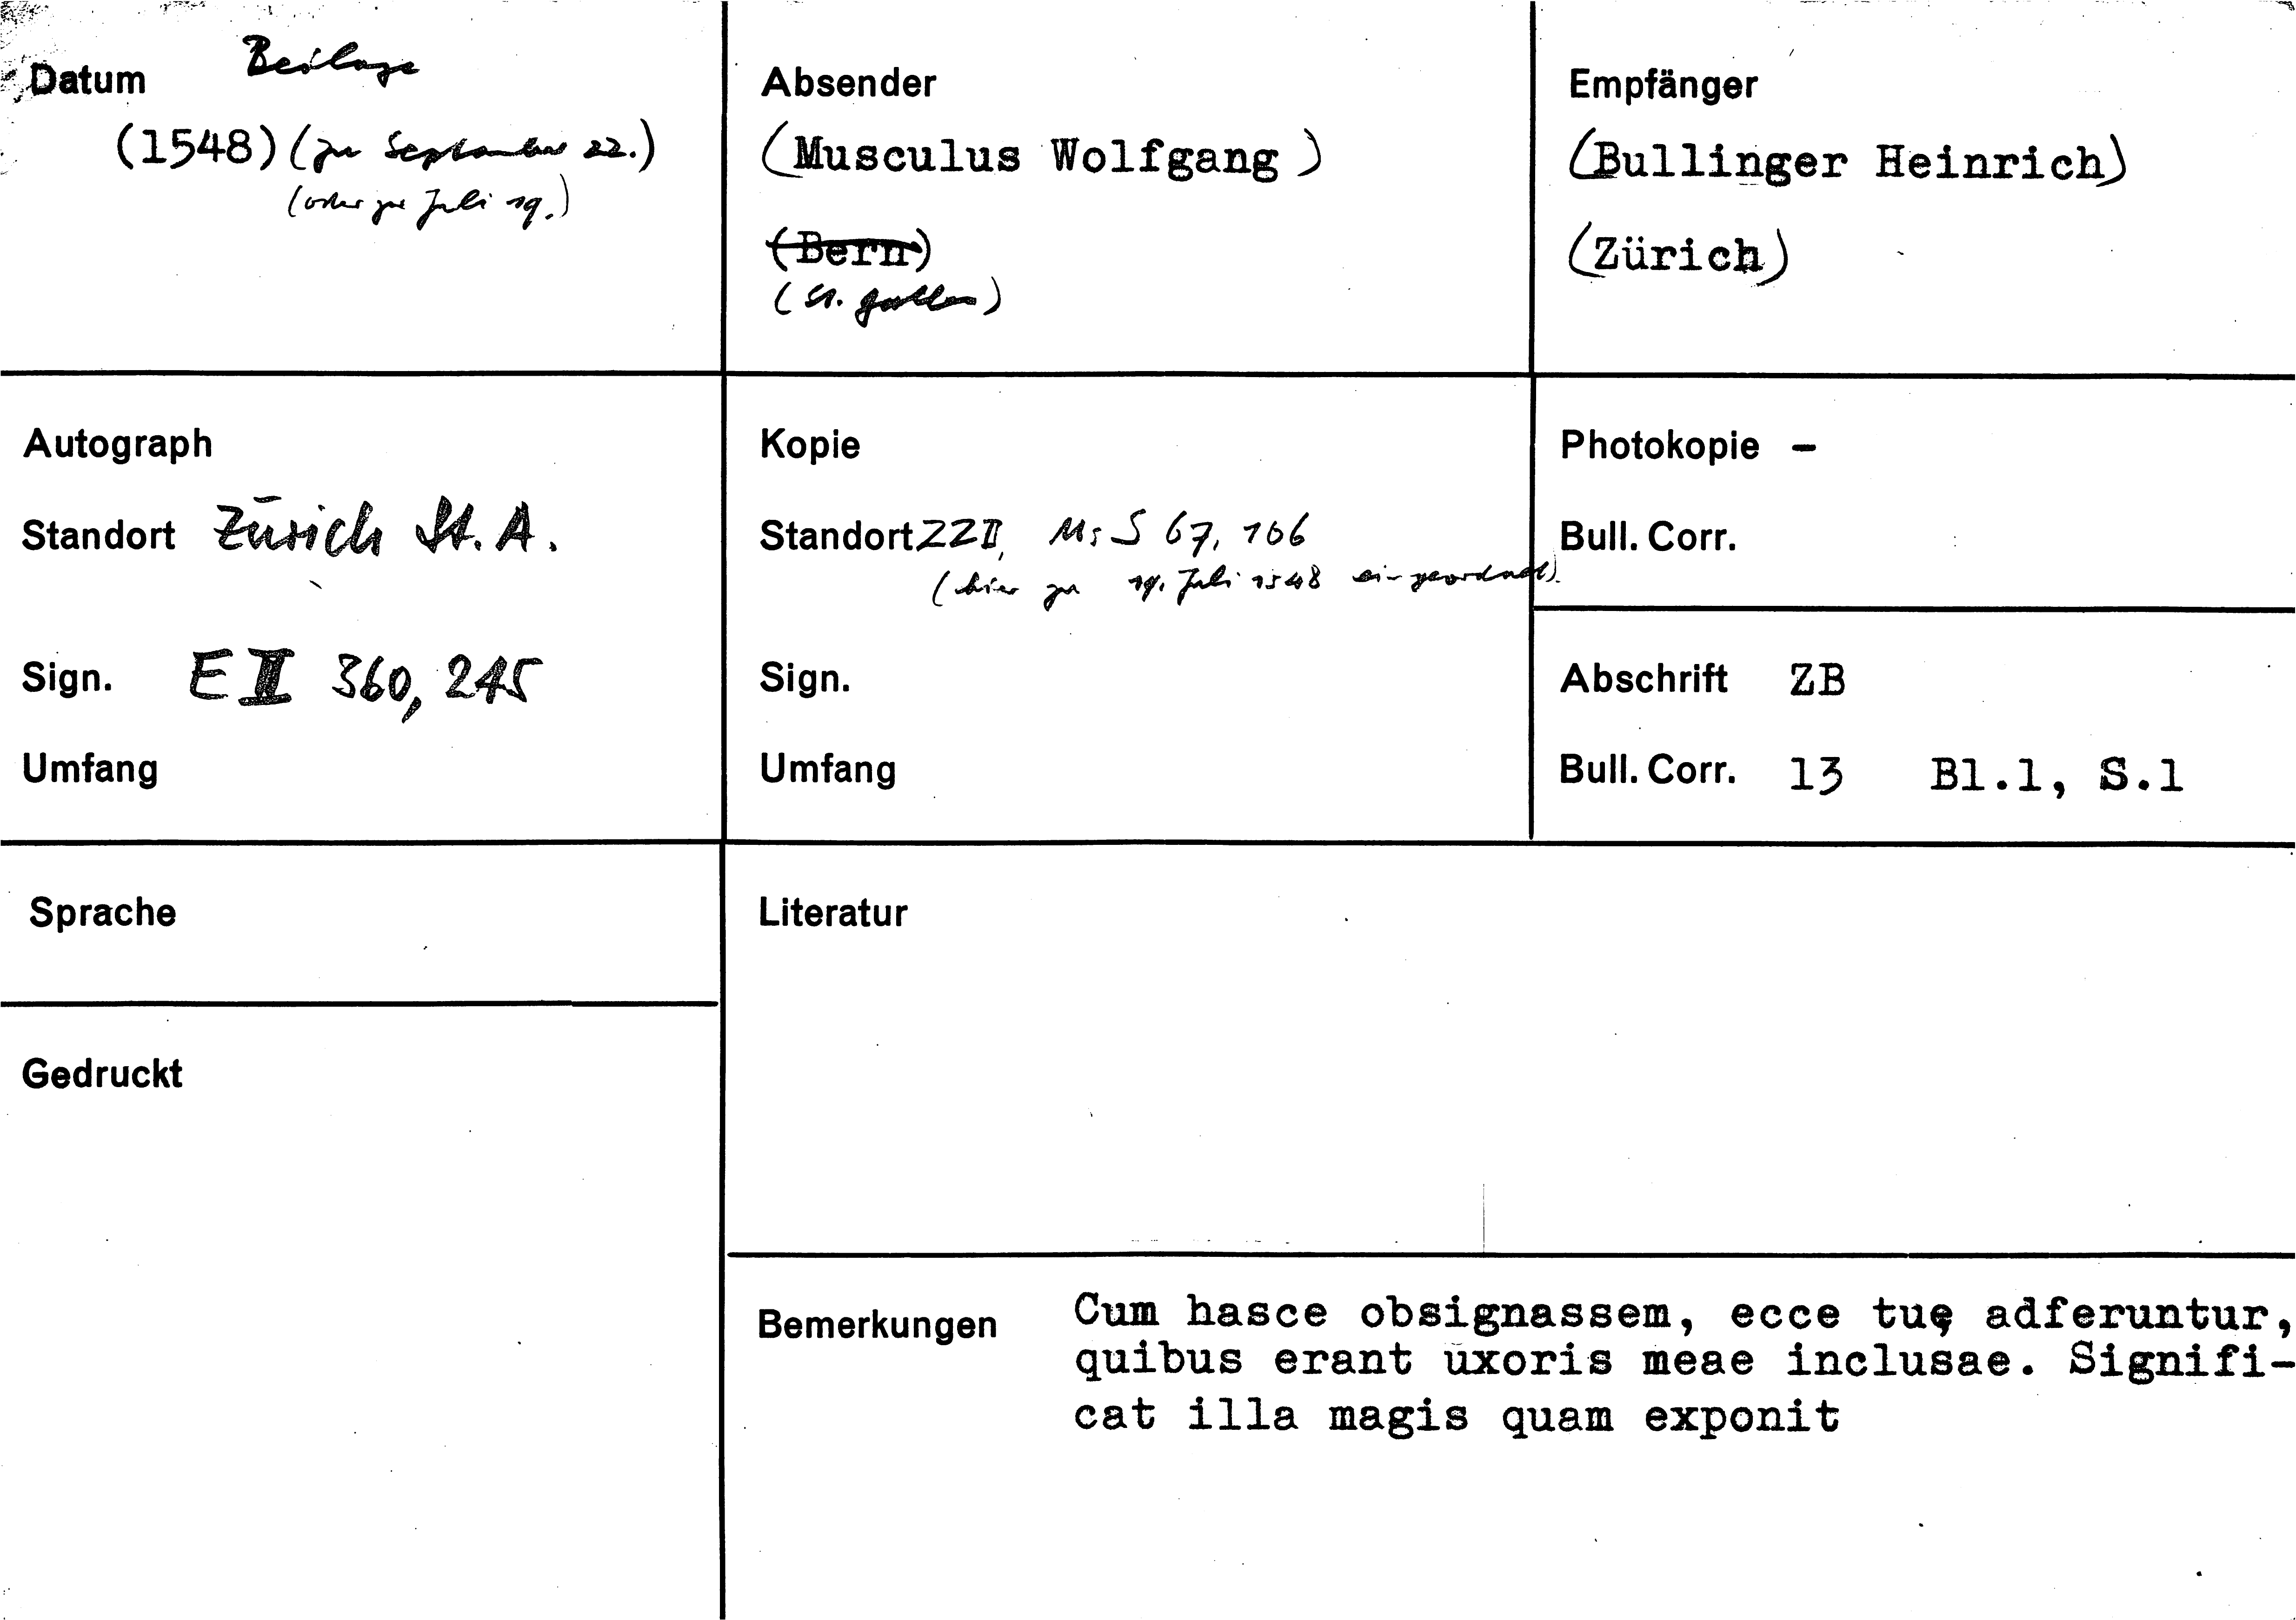 Datum Beilage
(1548) (zu September 22.)
(oder zu Juli 19.)
Absender
(Musculus Wolfgang)
(Bern)
(St. Gallen)
Empfänger
(Bullinger Heinrich)
(Zürich)
Autograph
Standort Zürich St. A.
Sign. E II 360, 245
Umfang
Kopie
Standort ZZII, Ms S 67, 106
(hier zu 19. Juli 1548 eingeordnet).
Sign.
Umfang
Photokopie -
Bull. Corr.
Abschrift ZB
Bull. Corr. 13 Bl.1, S.1
Sprache
Gedruckt
Literatur
Bemerkungen Cum hasce obsignassem, ecce tuę adferuntur,
quibus erant uxoris meae inclusae. Signifi-
cat illa magis quam exponit